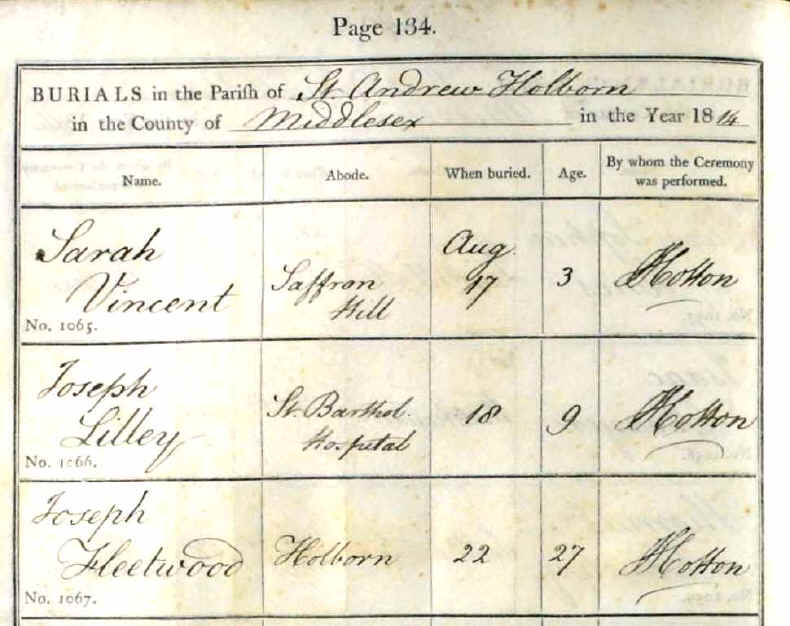 Page 134.
BURIALS in the Pariſh of St. Andrew Holborn
in the County of Middlesex in the Year 1814
Name. Abode. When buried. Age. By whom the Ceremony was performed.
Sarah Vincent
No. 1065.
Saffron Hill
Aug. 17
3
Hotton
Joseph Lilley
No. 1066.
St. Barthol. Hospital
18
9
Hotton
Joseph Fleetwood
No. 1067.
Holborn
22
27
Hotton